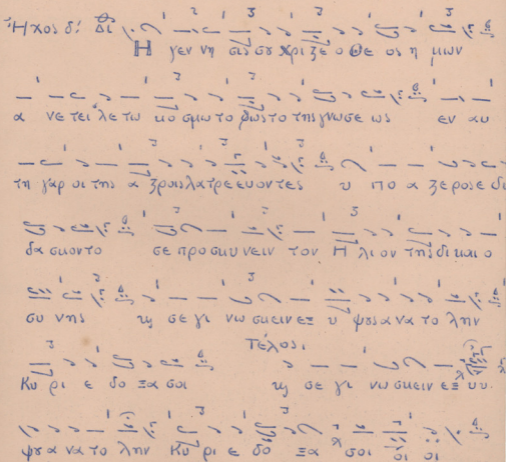 Ἦχος δ: Δι
Η γεν νη σις σου Χρι ϛε ο Θε ος η μων
α νε τει λε τω κο σμω το φως το της γνωσε ως εν αυ
τη γαρ οι της α ϛροις λατρεευοντες υ πο α ϛερος ε δι
δα σκοντο σε προ σκυ νειν τον Η λι ον της δι και ο
συ νης ϗ σε γι νω σκειν εξ υ ψους ανα το λην
Τέλος.
Κυ ρι ε δο ξα σοι ϗ σε γι νω σκειν εξ υυ.
ψου α να το λην Κυ ρι ε δο ξα σοι οι οι